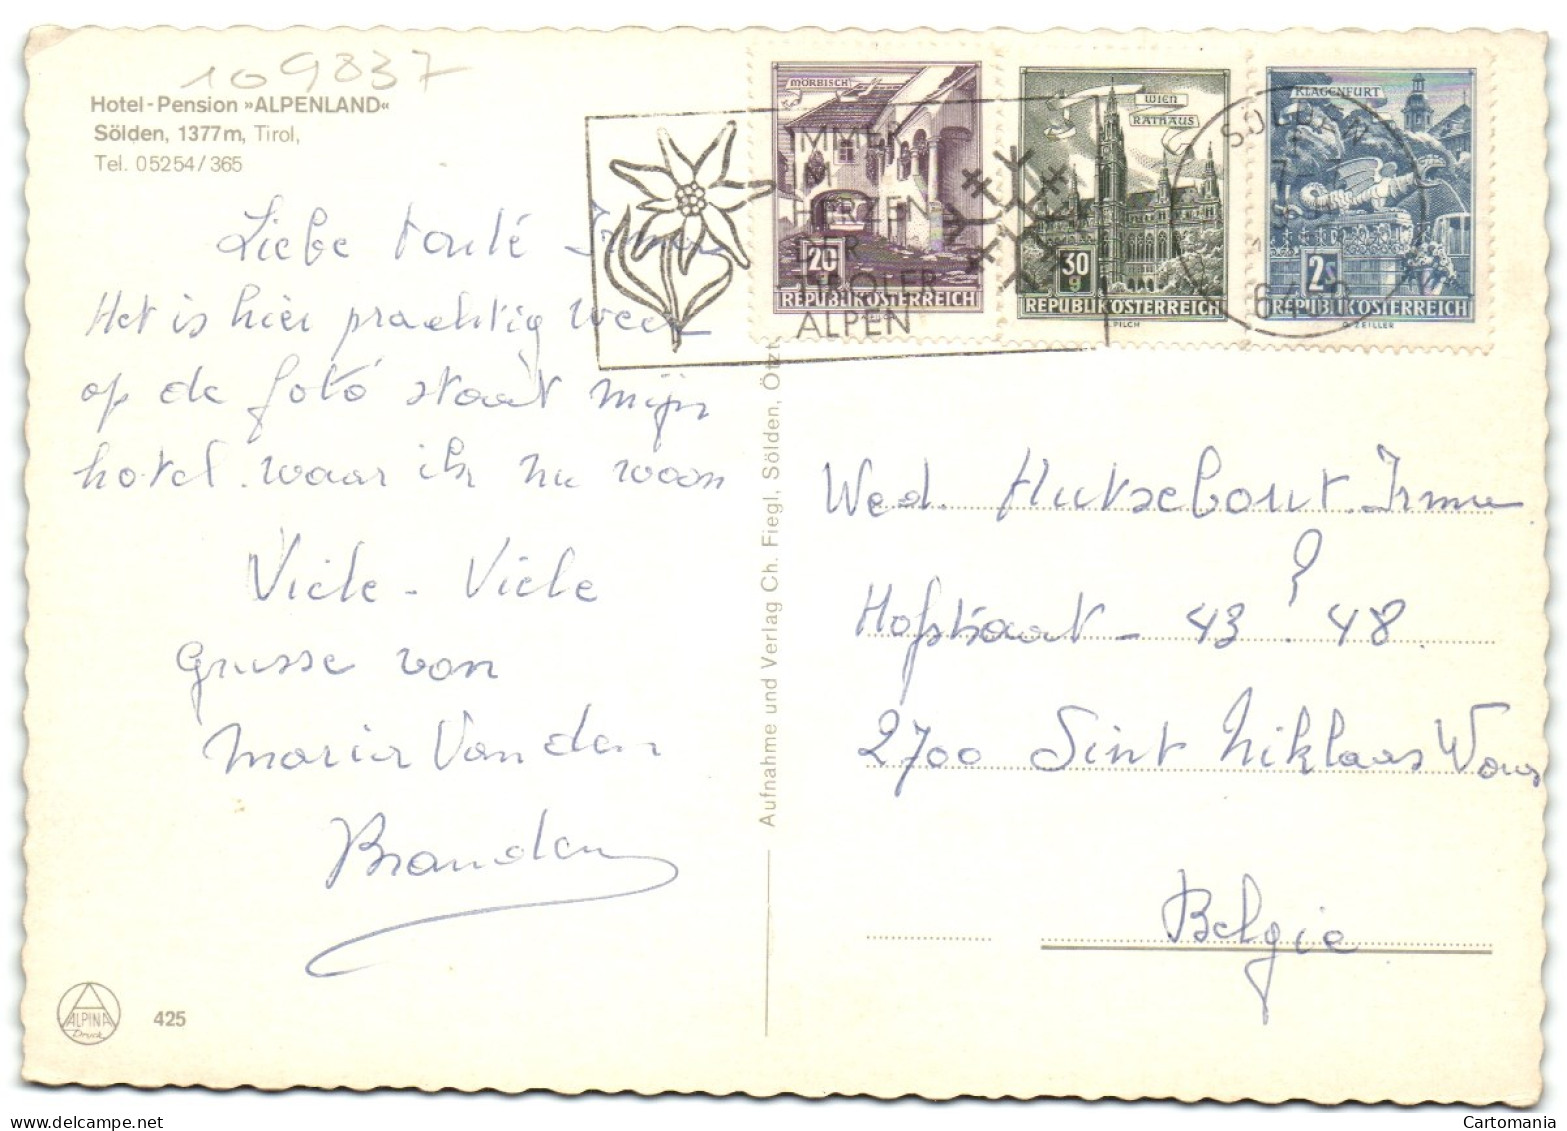 109837
Hotel-Pension »ALPENLAND«
Sölden, 1377m, Tirol,
Tel. 05254/365
Liebe tanté Irma
Het is hier prachtig weer
op de fotó staat mijn
hotel. waar ik nu woon
Viele - Viele
Grusse von
Maria Van den
Branden
ALPINA
Druck
425
Aufnahme und Verlag Ch. Fiegl, Sölden, Ötzt
IMMER
IM
HERZEN
DER
TIROLER
ALPEN
MÖRBISCH
20
REPUBLIK ÖSTERREICH
WIEN
RATHAUS
30
g
REPUBLIK ÖSTERREICH
PILCH
KLAGENFURT
2s
REPUBLIK ÖSTERREICH
G. ZEILLER
SÖLDEN
Wed. Hutsebout Irma
Hofstraat - 43 ? 48.
2700 Sint Niklaas Waas
Belgie
delcampe.net
Cartomania